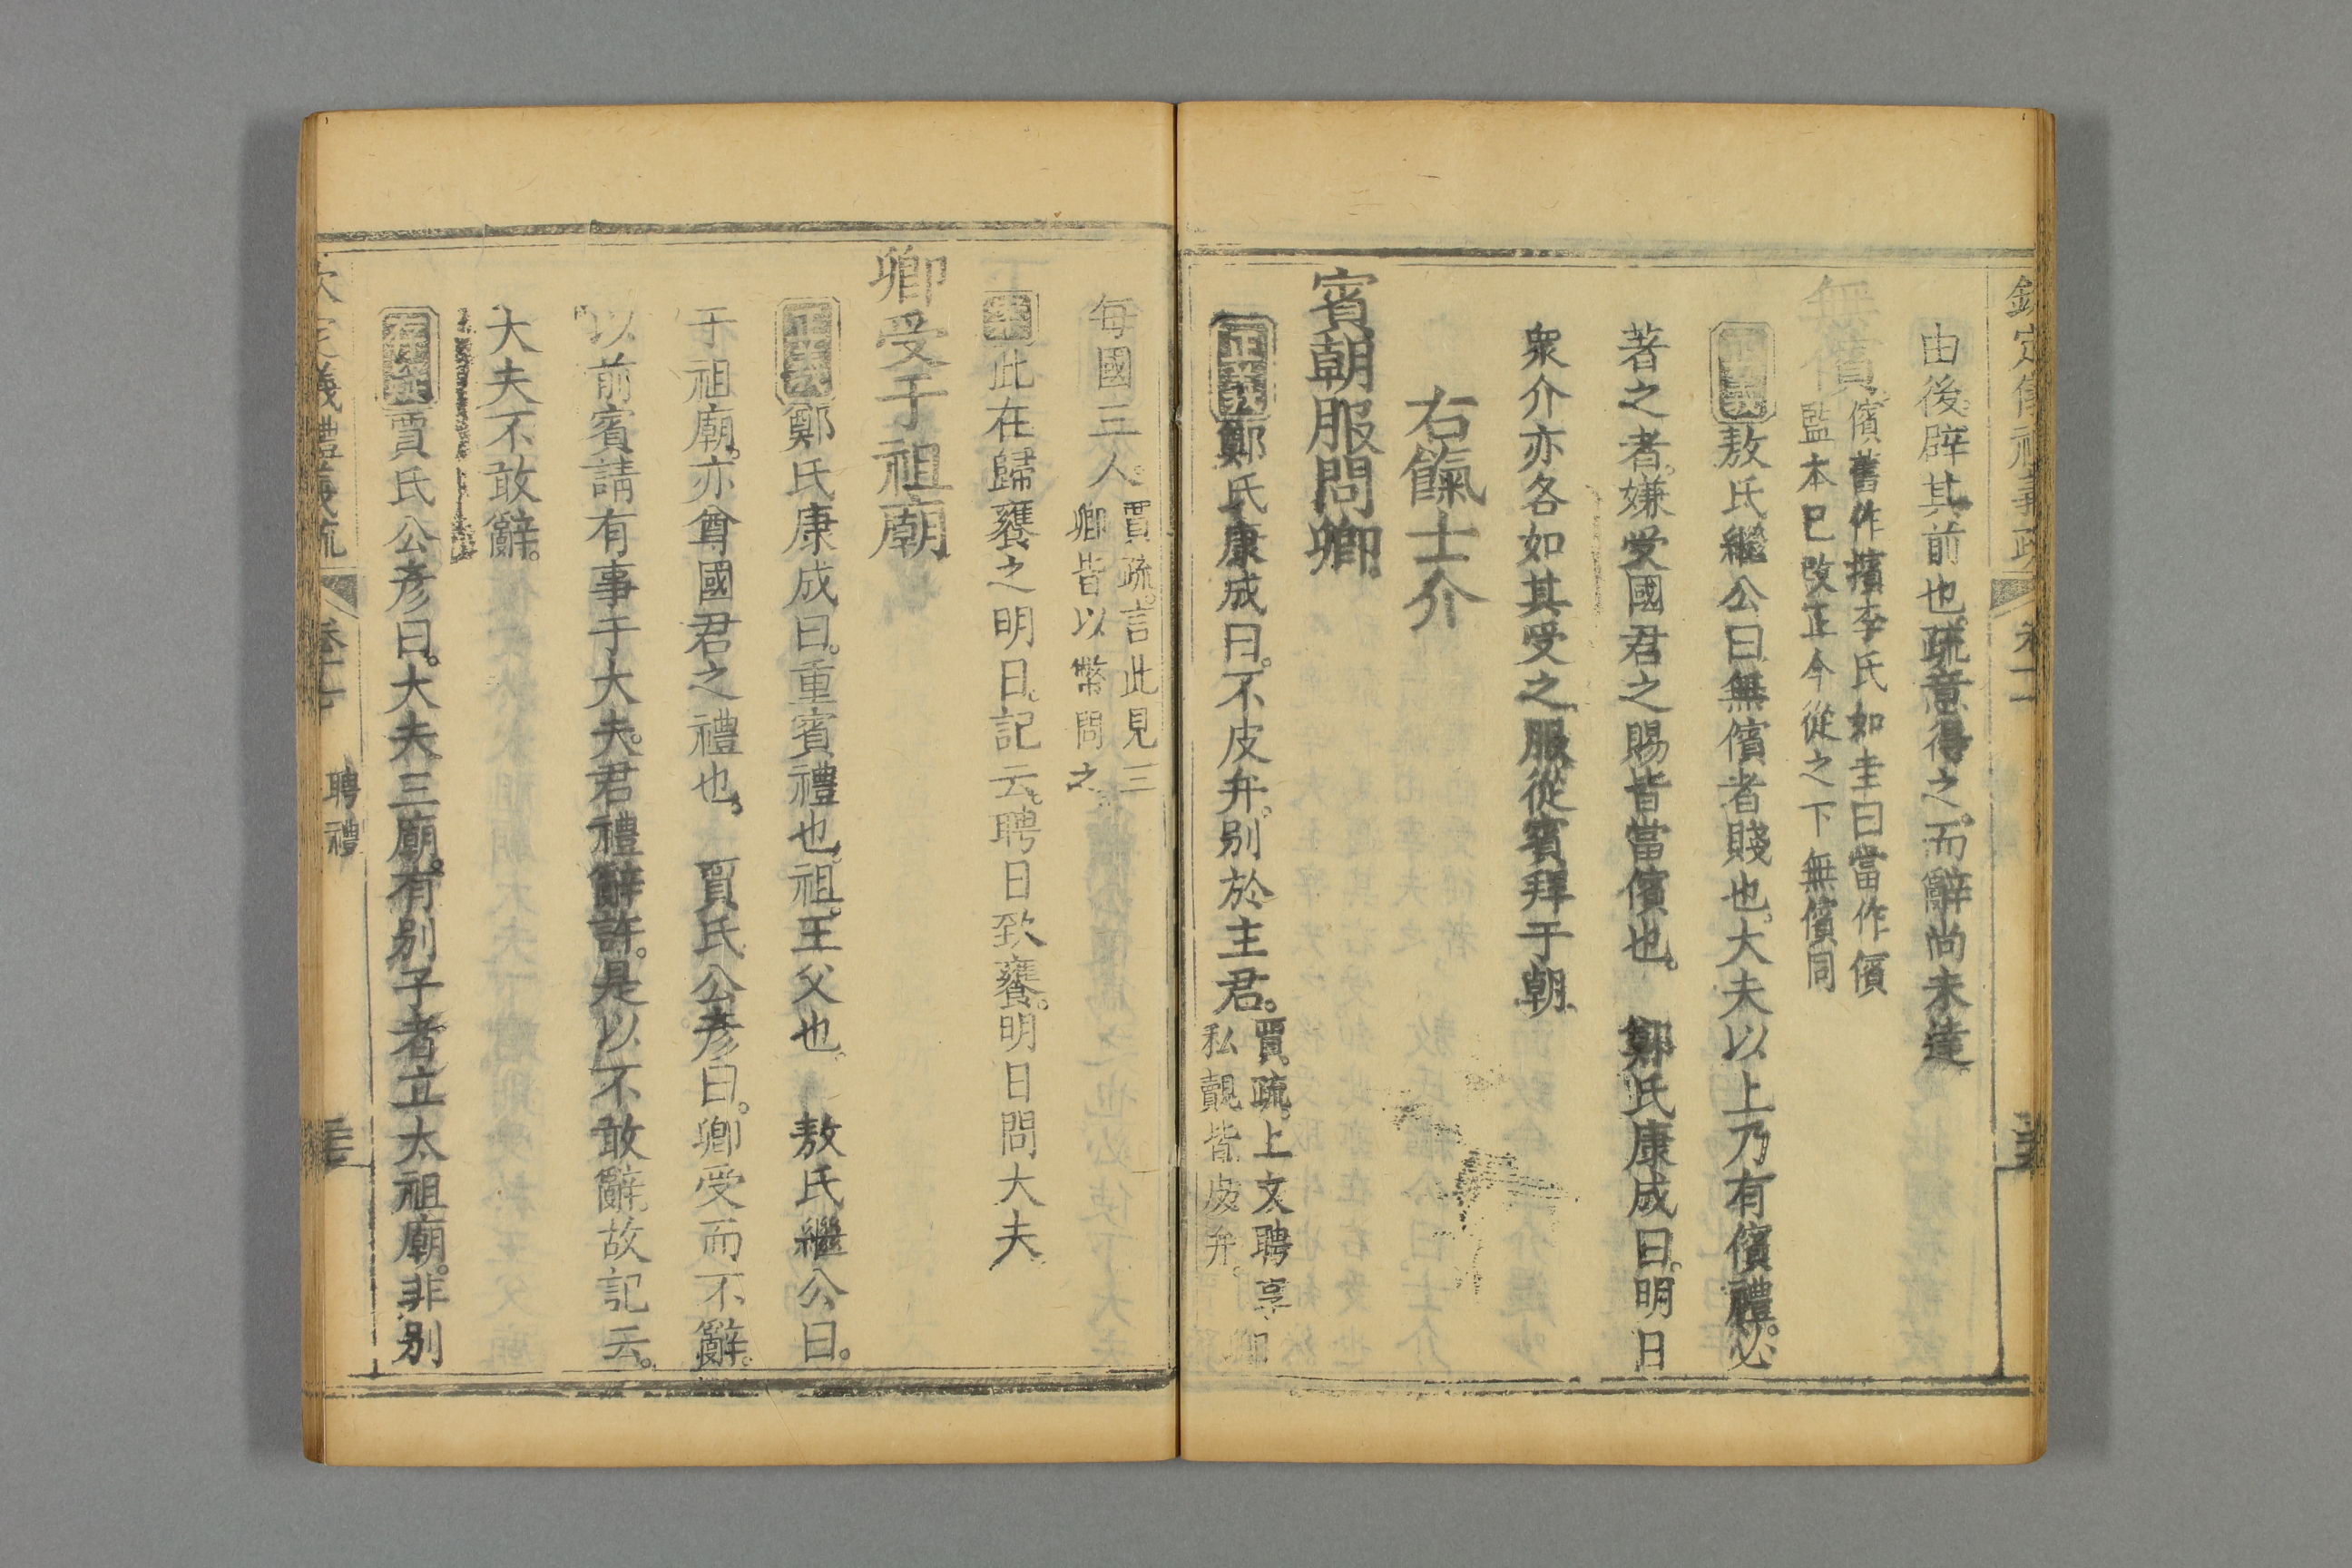 由後辟其前也。疏意得之。而辭尚未達
無儐。儐舊作擯李氏如圭曰當作儐
監本已改正今從之下無儐同
正義敖氏繼公曰無儐者賤也。大夫以上乃有儐禮。必
著之者。嫌受國君之賜皆當儐也。 鄭氏康成曰。明日
衆介亦各如其受之服從賓拜于朝
右餼士介
賓朝服問卿
正義鄭氏康成曰。不皮弁。別於主君。賈疏。上文聘享
私覿皆皮弁。
每國三人。賈疏。言此見三
卿皆以幣問之
此在歸饔之明日。記云。聘日致饔。明日問大夫
卿受于祖廟
正義鄭氏康成曰。重賓禮也。祖。王父也。 敖氏繼公曰。
于祖廟。亦尊國君之禮也。 賈氏公彦曰。卿受而不辭。
以前賓請有事于大夫。君禮辭許。是以不敢辭。故記云。
大夫不敢辭。
存疑賈氏公彦曰。大夫三廟。有別子者立太祖廟。非別
聘禮